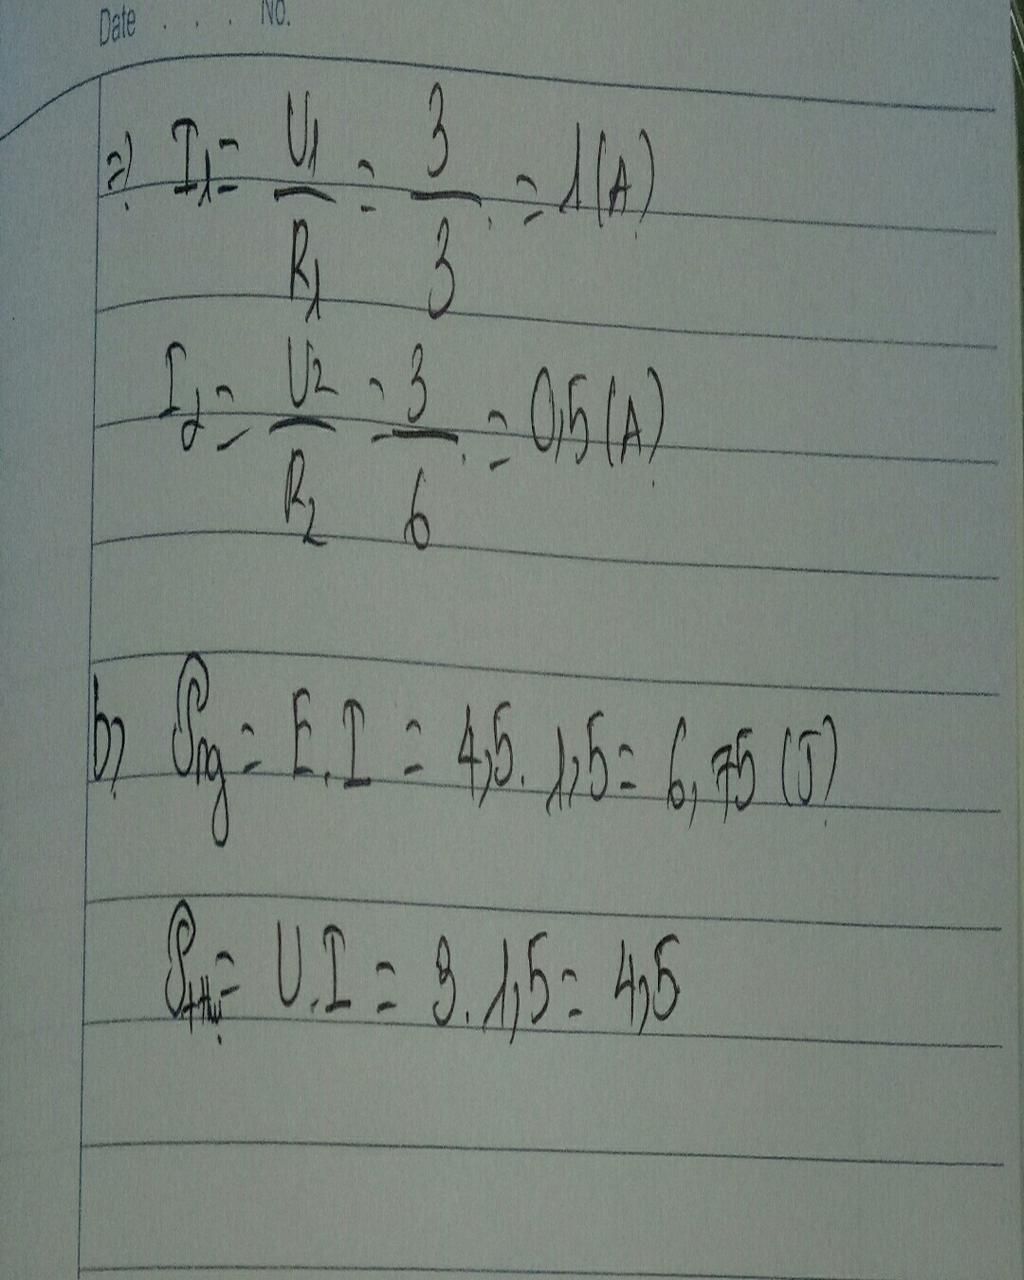 Date . . . . No.
=> I1 = U1/R1 = 3/3 = 1 (A)
I2 = U2/R2 = 3/6 = 0,5 (A)
b) Png = E.I = 4,5. 1,5 = 6,75 (J)
= U.I = 3. 1,5 = 4,5